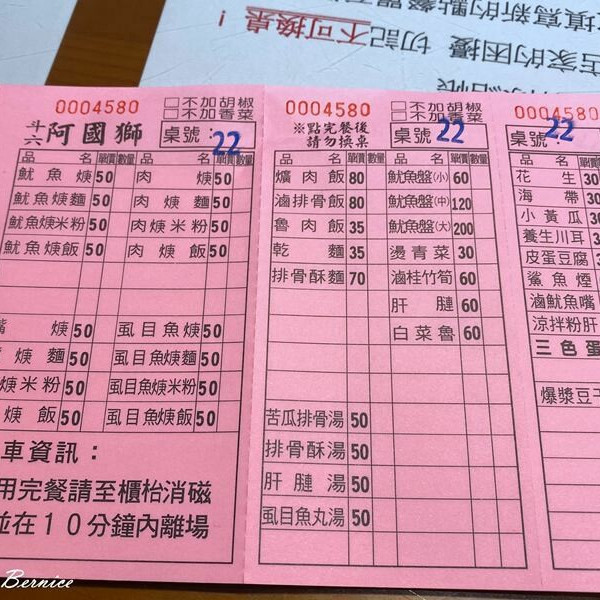 填寫新的點餐單
店家的困擾 切記不可換桌！
0004580
□不加胡椒
□不加香菜
斗六 阿國獅 桌號：22
品名 單價 數量 品名 單價 數量
魷魚焿 50 肉焿 50
魷魚焿麵 50 肉焿麵 50
魷魚焿米粉 50 肉焿米粉 50
魷魚焿飯 50 肉焿飯 50
嘴焿 50 虱目魚焿 50
焿麵 50 虱目魚焿麵 50
焿米粉 50 虱目魚焿米粉 50
焿飯 50 虱目魚焿飯 50
車資訊：
用完餐請至櫃枱消磁
並在10分鐘內離場
0004580
□不加胡椒
□不加香菜
※點完餐後
請勿換桌
桌號：22
品名 單價 數量 品名 單價 數量
爌肉飯 80 魷魚盤(小) 60
滷排骨飯 80 魷魚盤(中) 120
魯肉飯 35 魷魚盤(大) 200
乾麵 35 燙青菜 30
排骨酥麵 70 滷桂竹筍 60
肝腱 60
白菜魯 60
苦瓜排骨湯 50
排骨酥湯 50
肝腱湯 50
虱目魚丸湯 50
0004580
桌號：22
品名 單價
花生 30
海帶 30
小黃瓜 30
養生川耳
皮蛋豆腐
鯊魚煙
滷魷魚嘴
涼拌粉肝
三色蛋
爆漿豆干
Bernice